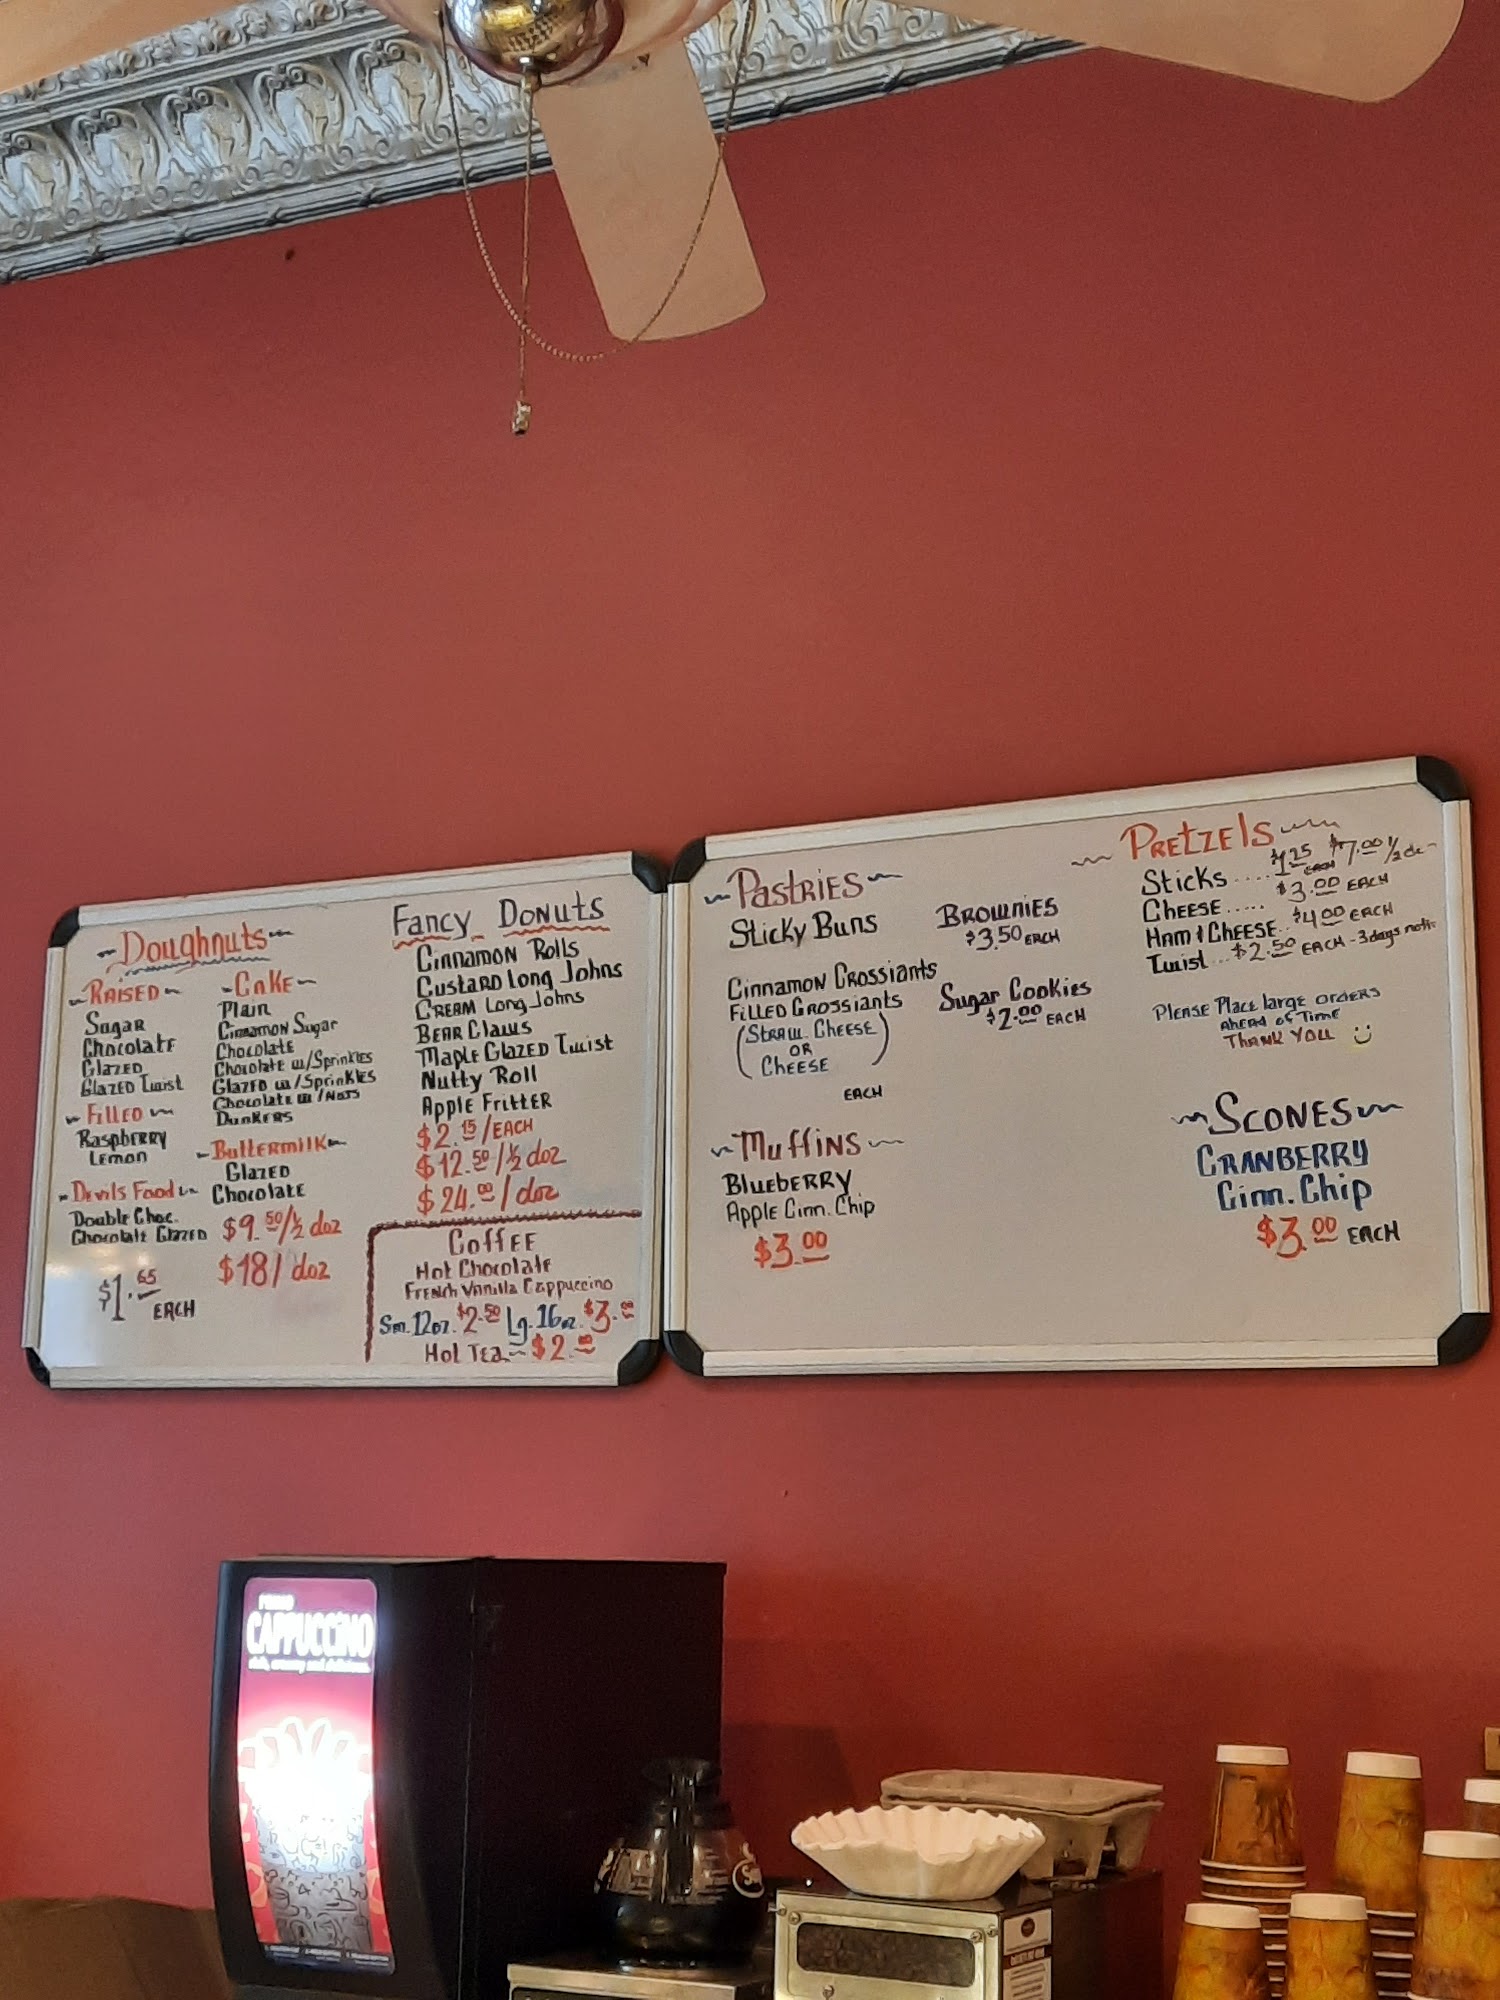 Doughnuts
Raised
Sugar
Chocolate
Glazed
Glazed Twist
Filled
Raspberry
Lemon
Devils Food
Double Choc.
Chocolate Glazed
$1.65
EACH
Cake
Plain
Cinnamon Sugar
Chocolate
Chocolate w/Sprinkles
Glazed w/Sprinkles
Chocolate w/Nuts
Dunkers
Buttermilk
Glazed
Chocolate
$9.50/½ doz
$18/doz
Fancy Donuts
Cinnamon Rolls
Custard Long Johns
Cream Long Johns
Bear Claws
Maple Glazed Twist
Nutty Roll
Apple Fritter
$2.15/EACH
$12.50/½ doz
$24.00/doz
Coffee
Hot Chocolate
French Vanilla Cappuccino
Sm. 12oz. $2.50 Lg. 16oz. $3.00
Hot Tea $2.00
Pastries
Sticky Buns
Cinnamon Crossiants
Filled Crossiants
(Straw. Cheese
OR
Cheese)
EACH
Muffins
Blueberry
Apple Cinn. Chip
$3.00
Brownies
$3.50 EACH
Sugar Cookies
$2.00 EACH
Pretzels
Sticks ..... $1.25 EACH $7.00 ½ dz
Cheese ..... $3.00 EACH
Ham & Cheese.. $4.00 EACH
Twist ... $2.50 EACH - 3 days
Please Place large orders
Ahead of Time
Thank You
Scones
Cranberry
Cinn. Chip
$3.00 EACH
CAPPUCCINO